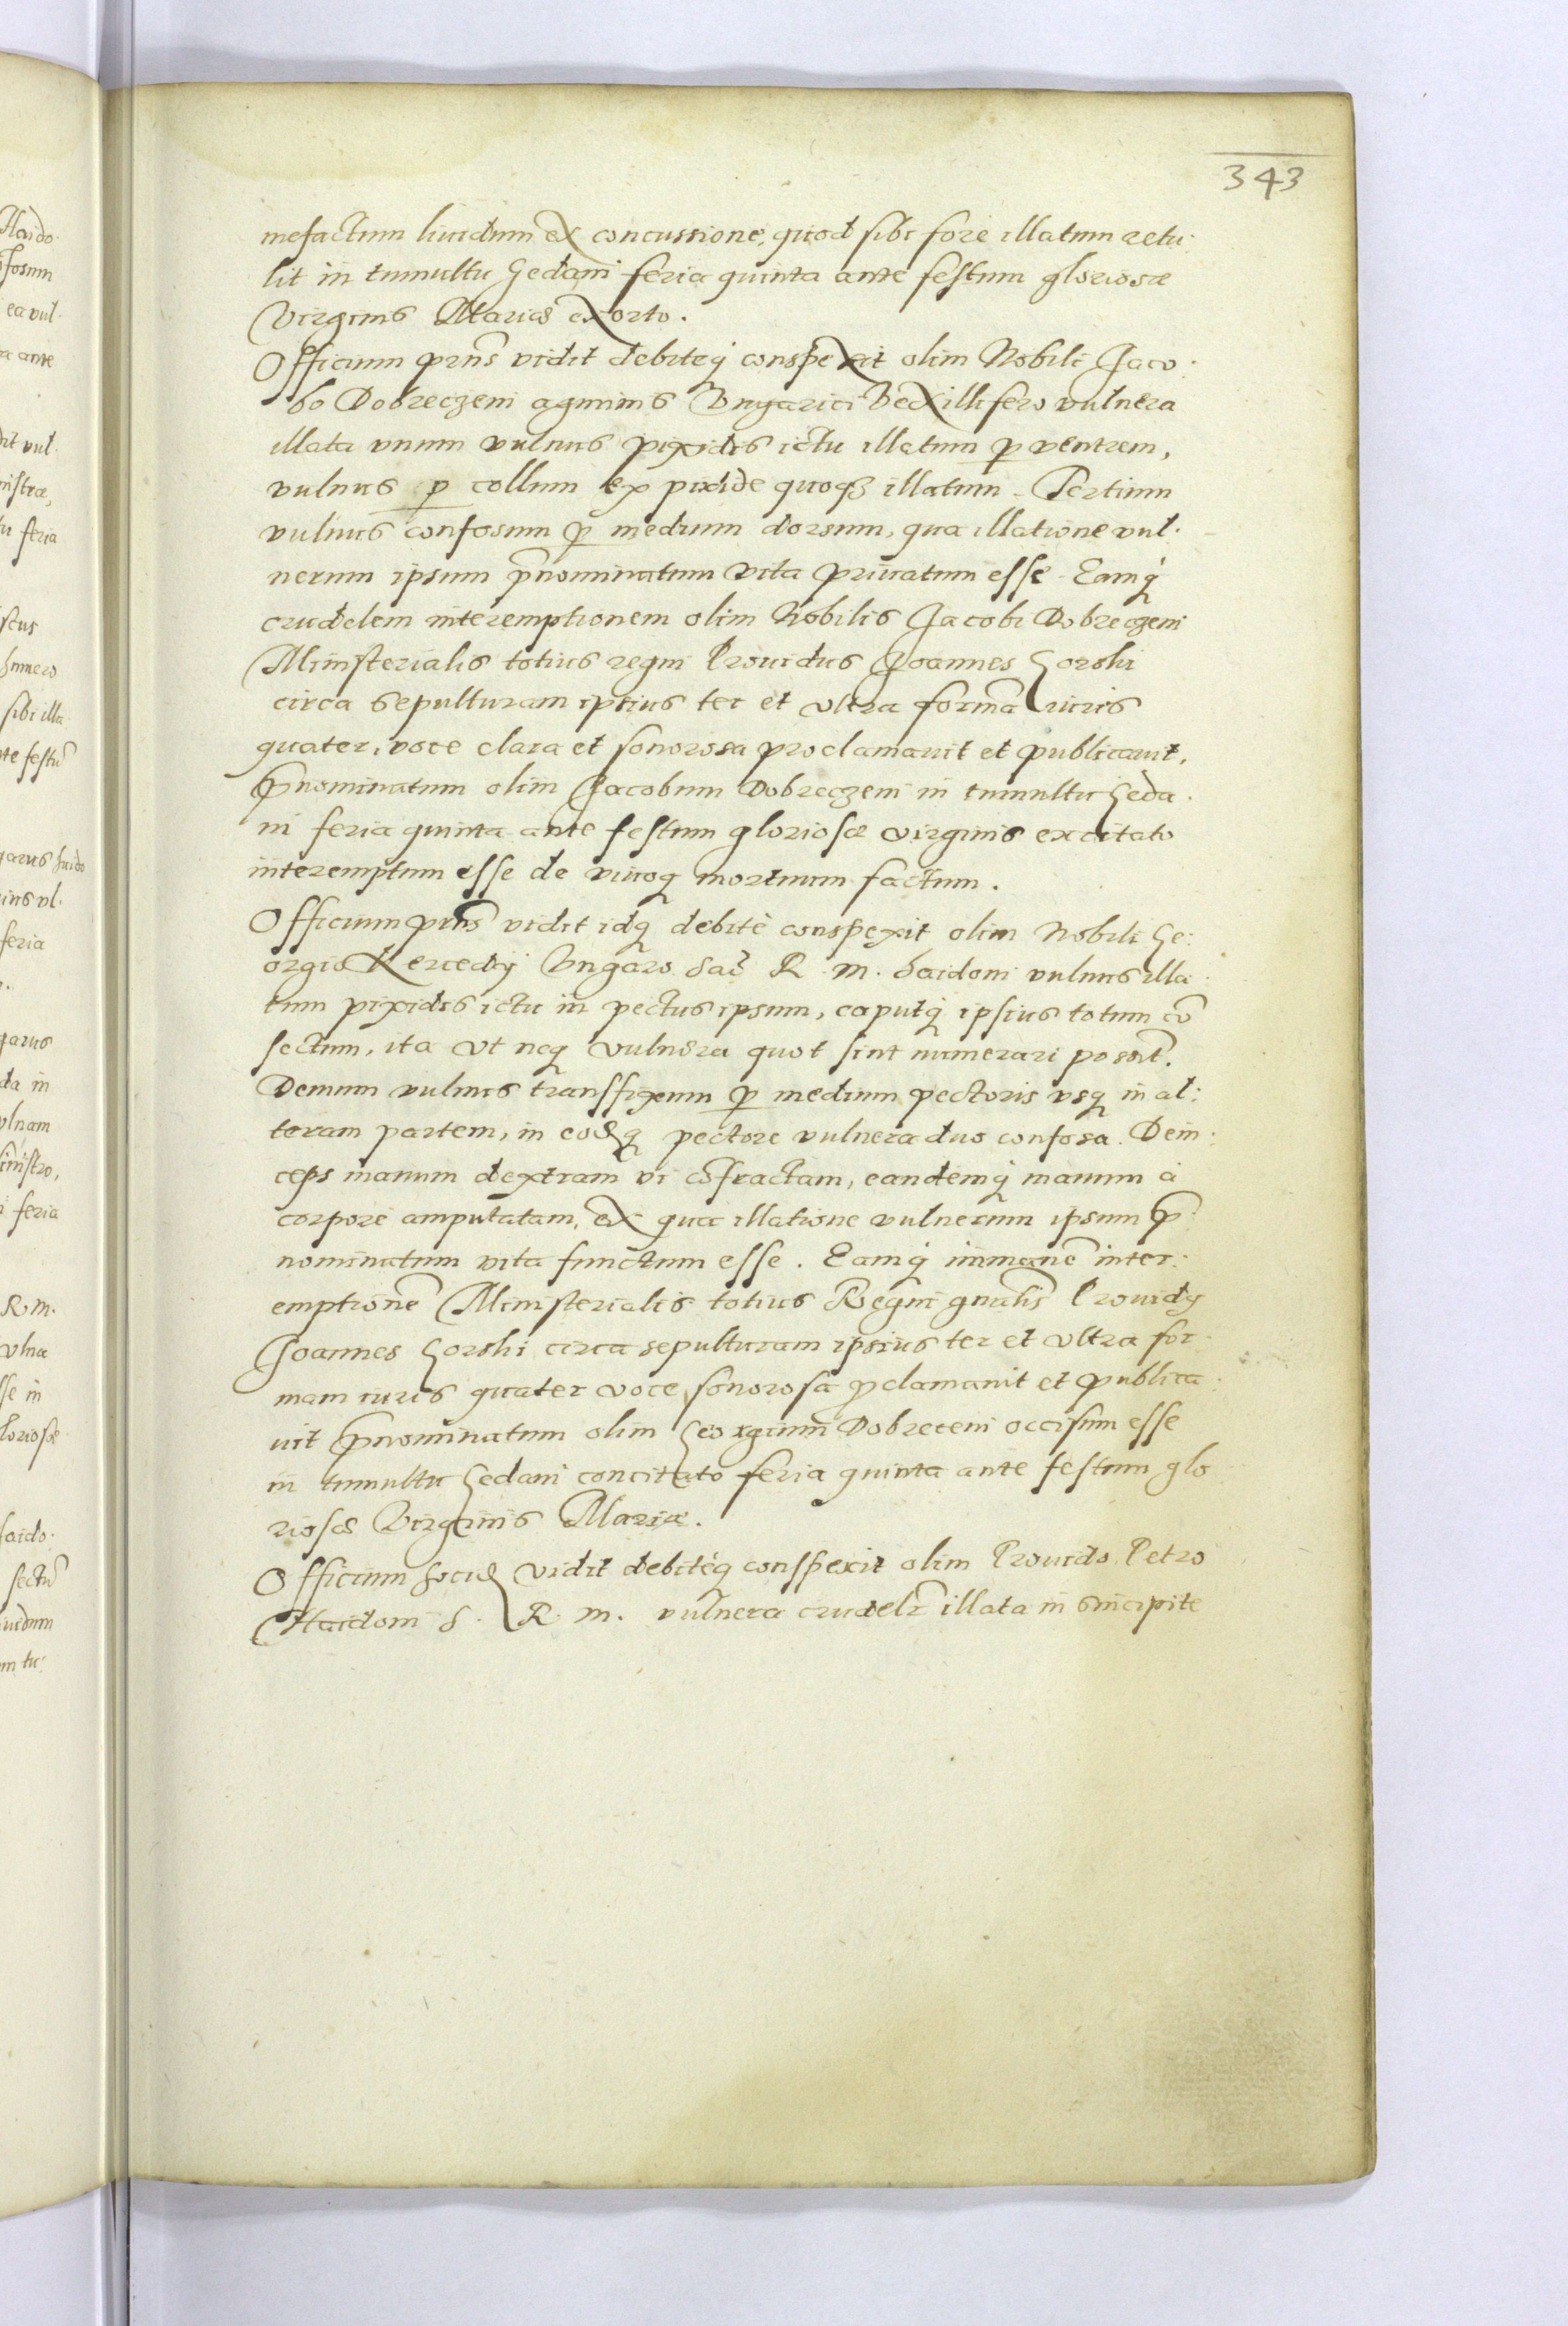 343
mefactum liuidum ex concussione, quod sibi fore illatum retu:
lit in tumultu Gedani feria quinta ante festum gloriosæ
Virginis Mariæ exorto.
Officium prñs vidit debiteq́ conspexit olim Nobili Jaco:
bo Dobreczeni agminis Vngarici Vexillifero vulnera
illata vnum vulnus pixidis ictu illatum ꝑ ventrem,
vulnus ꝑ collum ex pixide quoqȝ illatum. Tertium
vulnus confosum ꝑ medium dorsum, qua illatione vul:
nerum ipsum p̃nominatum vita priuatum esse. Eamq́
crudelem interemptionem olim Nobilis Jacobi Dobreczeni
Ministerialis totius regni Prouidus Joannes Gorski
circa sepulturam ipsius ter et vltra formã iuris
quater, voce clara et sonorosa proclamauit et publicauit,
p̃nominatum olim Jacobum Dobreczeni in tumultu Geda:
ni feria quinta ante festum gloriosæ virginis excitato
interemptum esse de viuoq́ mortuum factum.
Officium prñs vidit idq́ debitè conspexit olim Nobili Ge:
orgio Kereedy Vngaro Sac̃ R. M. haidoni vulnus illa:
tum pixidis ictu in pectus ipsum, caputq́ ipsius totum cõ
sectum, ita vt neq́ vulnera quot sint numerari possĩt.
Demum vulnus transfixum ꝑ medium pectoris vsq́ in al:
teram partem, in eodq́ pectore vulnera duo confosa. Dein:
ceps manum dextram vi cõfractam, eandemq́ manum à
corpore amputatam, ex qua illatione vulnerum ipsum p̃:
nominatum vita functum esse. Eamq́ immanẽ inter:
emptionẽ Ministerialis totius Regni gñalis Prouidꝯ
Joannes Gorski circa sepulturam ipsius ter et vltra for:
mam iuris quater voce sonorosa ꝓclamauit et publica:
uit p̃nominatum olim Georgium Dobreceni occisum esse
in tumultu Gedani concitato feria quinta ante festum glo
riosæ Virginis Mariæ.
Officium vidit debitèq́ conspexit olim Prouido Petro
Haidoni S. R. M. vulnera crudelr̃ illata in sincipite